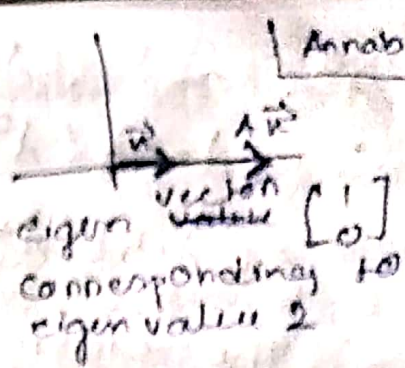 Annab
v⃗ A v⃗
eigen vector [1 0]
corresponding to
eigen value 2